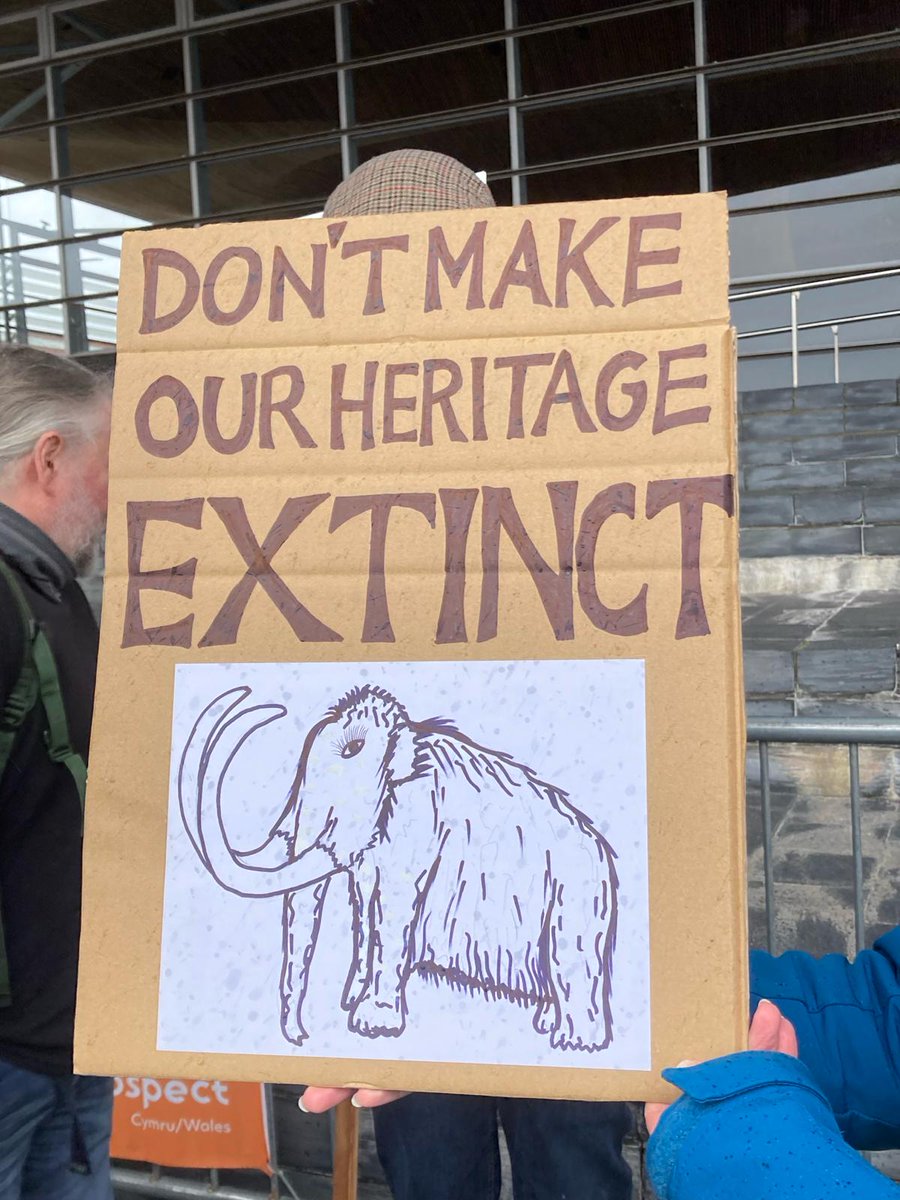 DON'T MAKE
OUR HERITAGE
EXTINCT
ospect
Cymru/Wales